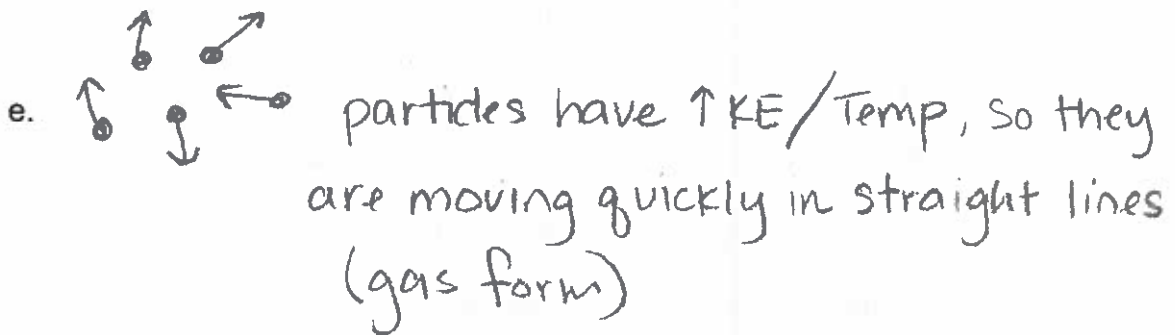 e. particles have ↑ KE/Temp, so they
are moving quickly in straight lines
(gas form)